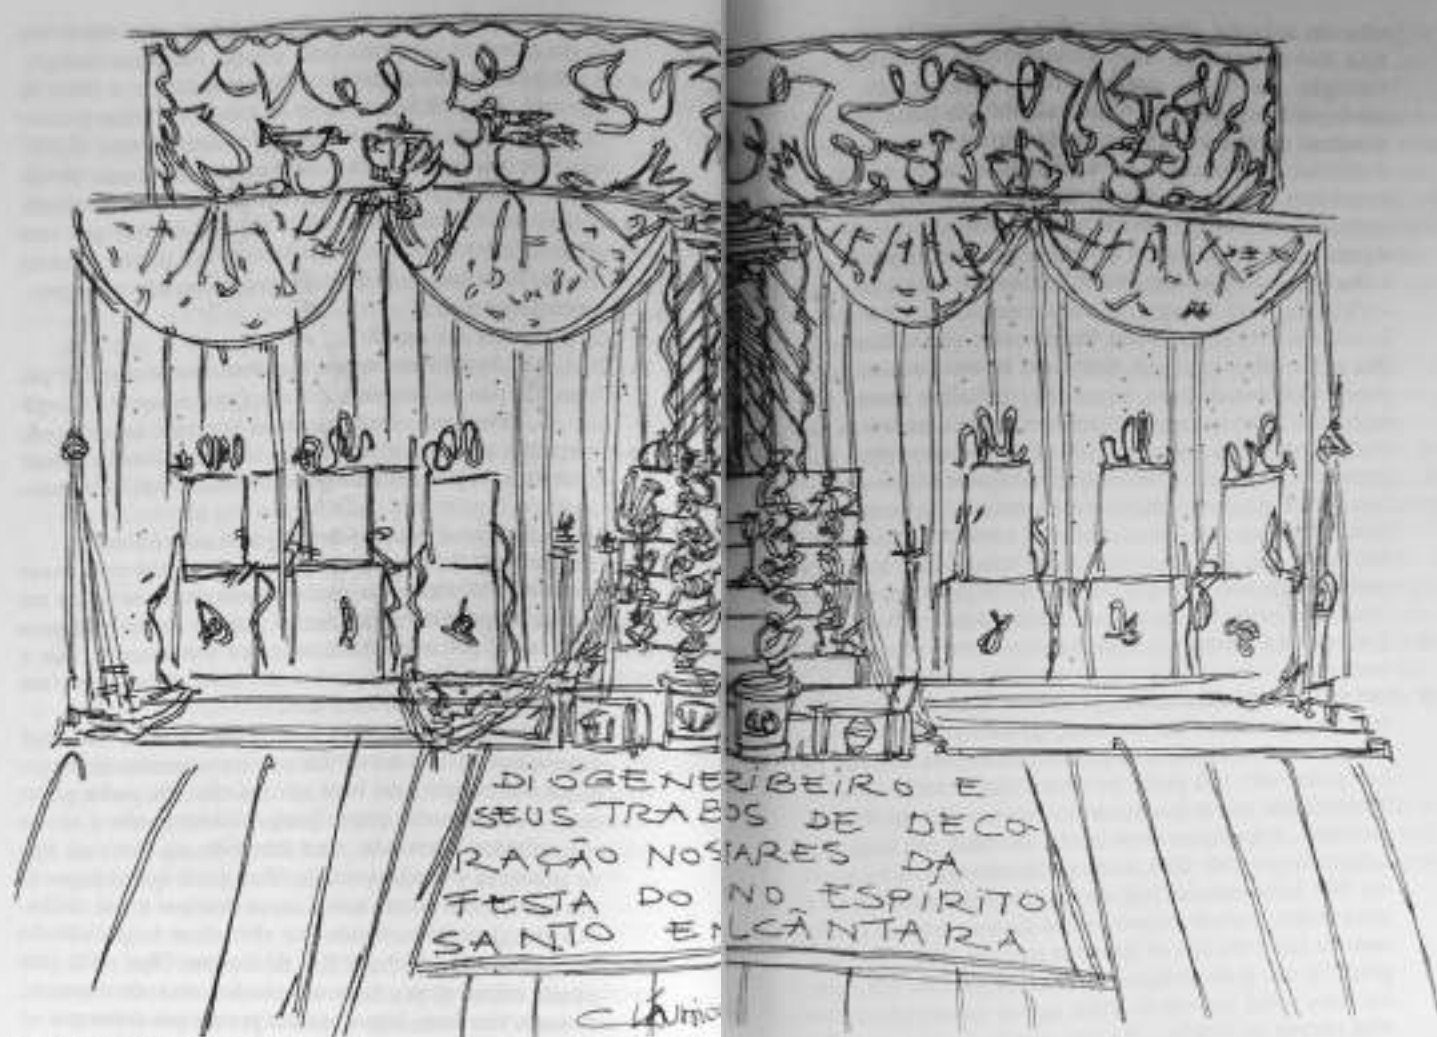 DIOGENE RIBEIRO E
SEUS TRAB OS DE DECO-
RACÃO NOS TARES DA
FESTA DO NO ESPIRITO
SANTO E LCÂNTARA